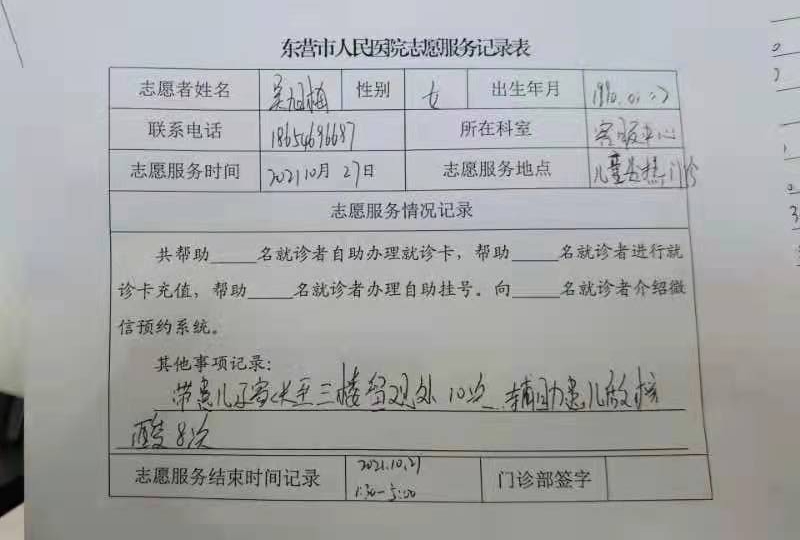 东营市人民医院志愿服务记录表
志愿者姓名 吴旭梅 性别 女 出生年月 1990.01.27
联系电话 18654696687 所在科室 客服中心
志愿服务时间 2021 10月 27日 志愿服务地点 儿童发热门诊
志愿服务情况记录
共帮助_____名就诊者自助办理就诊卡，帮助_____名就诊者进行就
诊卡充值，帮助_____名就诊者办理自助挂号。向_____名就诊者介绍微
信预约系统。
其他事项记录：
带患儿及家长至三楼留观处10次 辅助患儿做核
酸8次
志愿服务结束时间记录 2021.10.27 门诊部签字
1:30-5:00